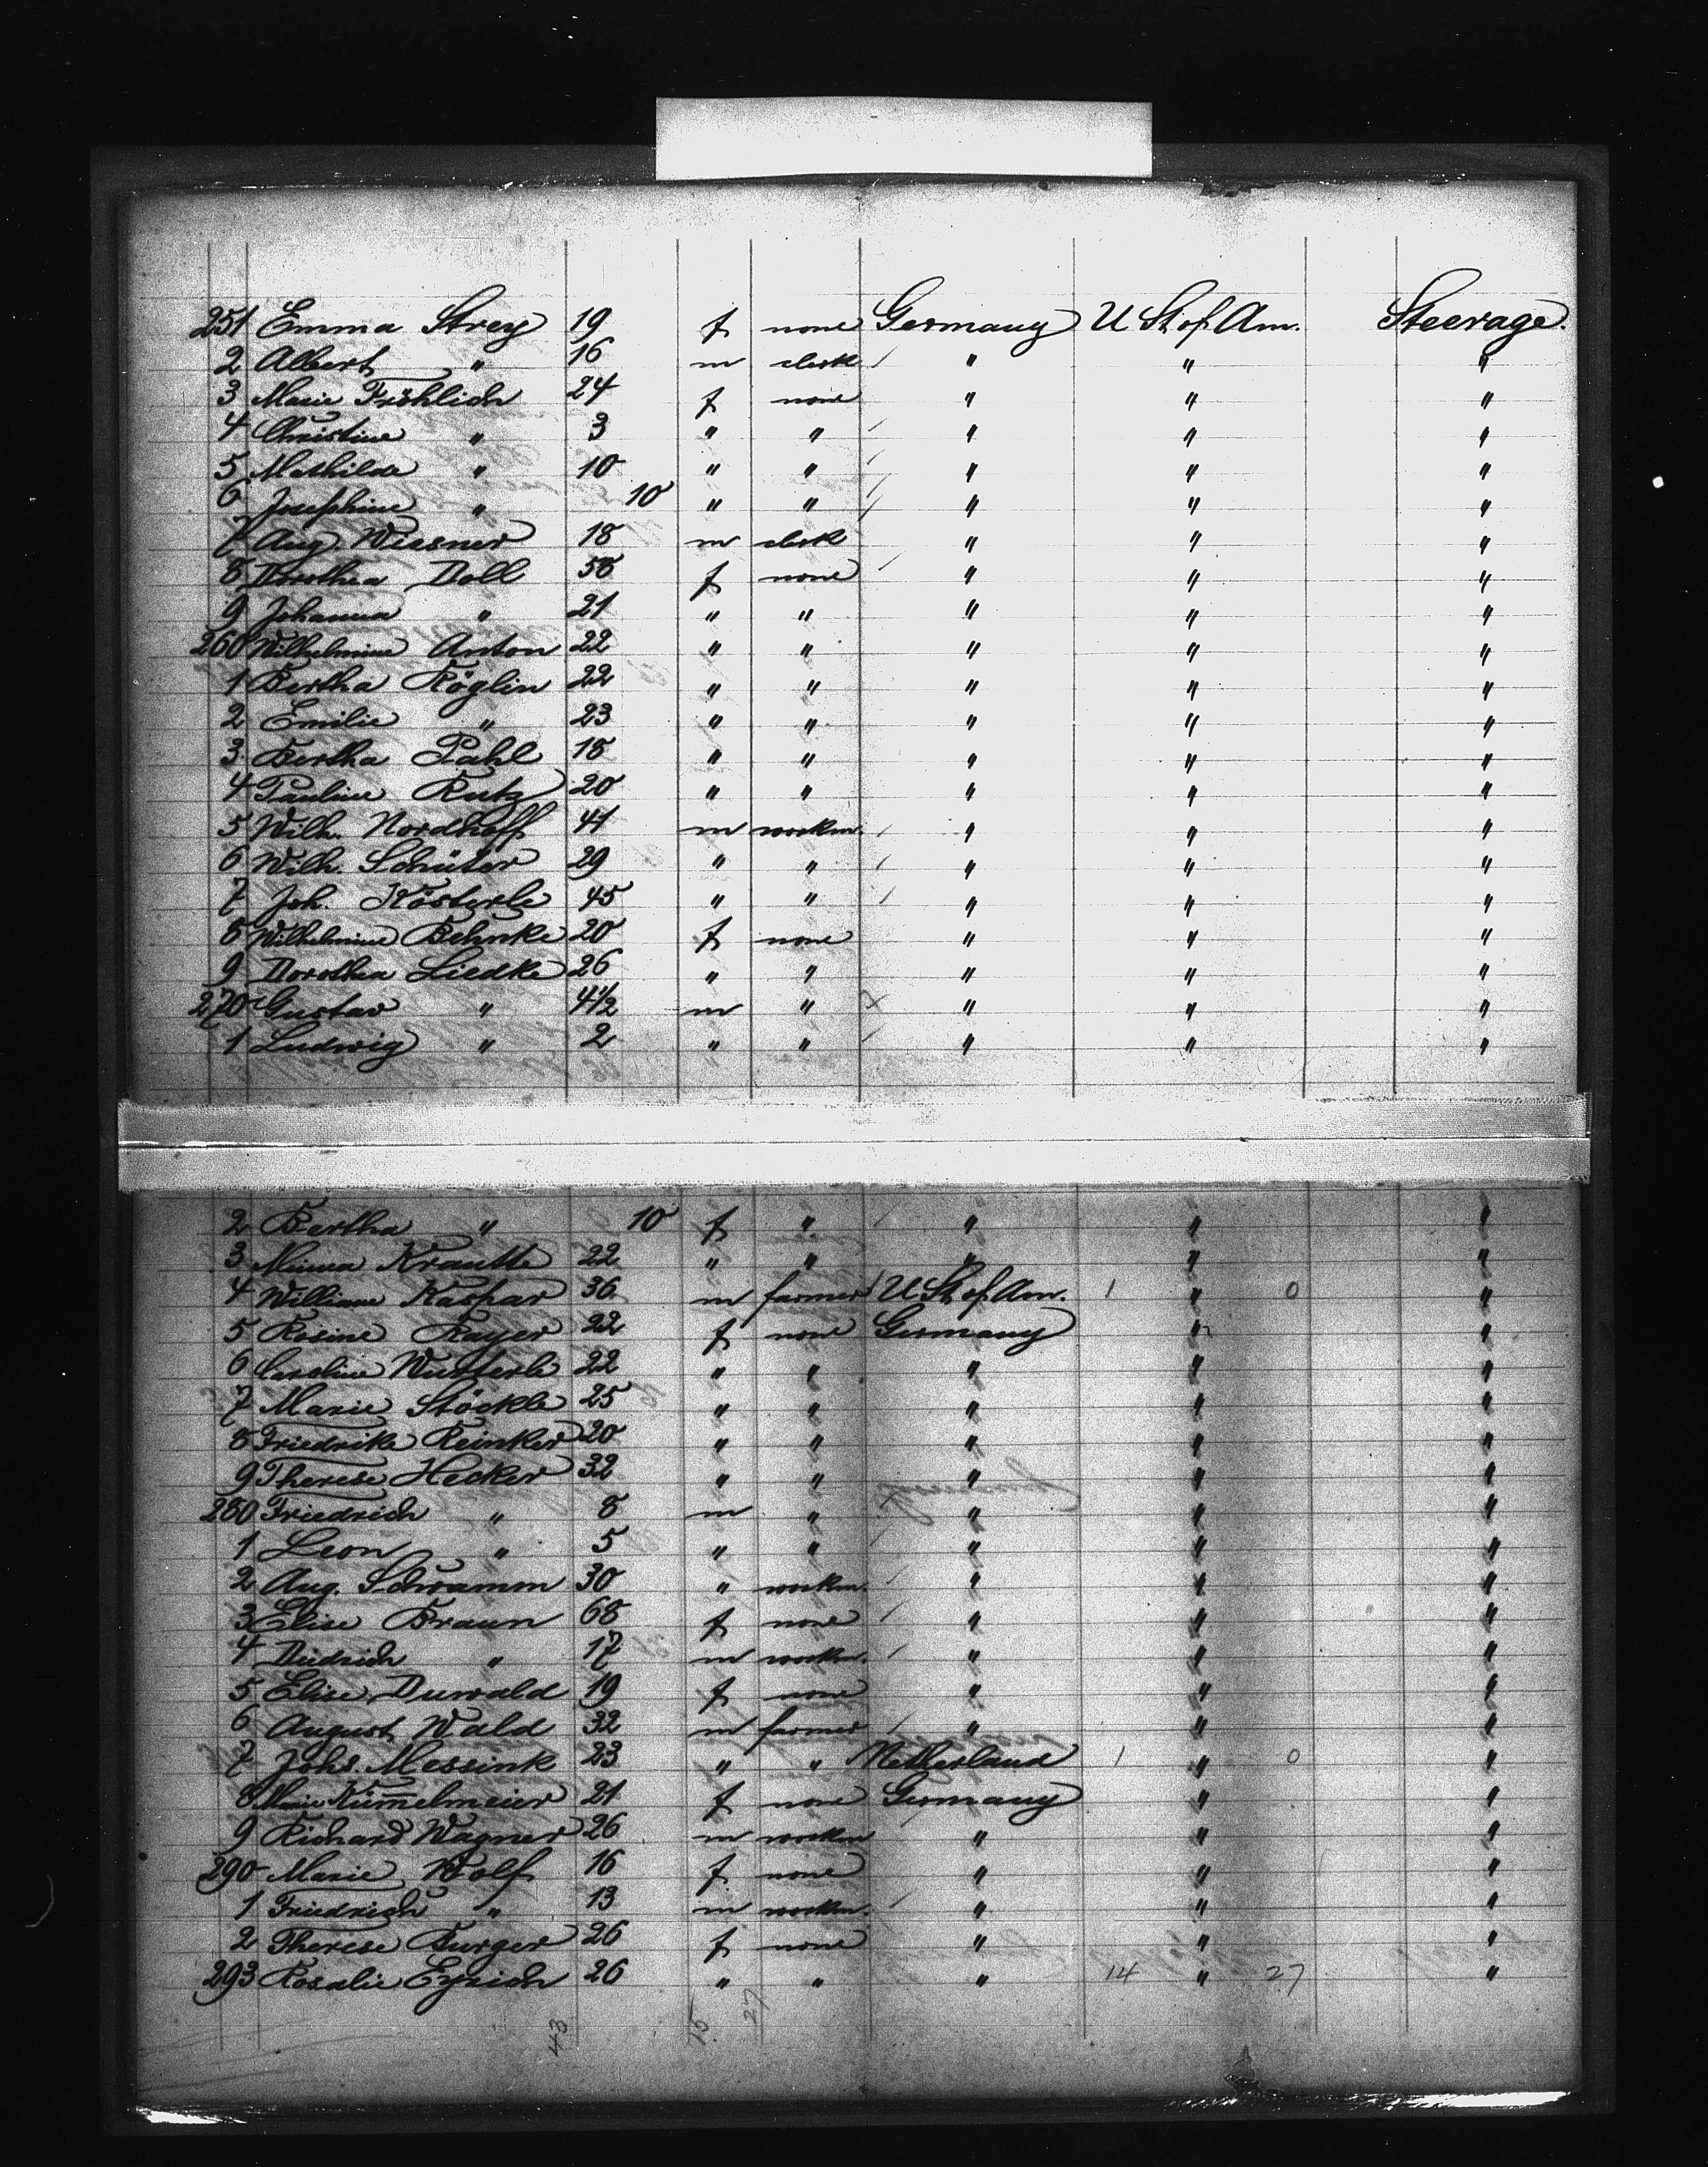 251 Emma Strey 19 f none Germany U St of Am. Steerage.
2 Albert " 16 m clerk " " "
3 Marie Fröhlich 24 f none " " "
4 Christine " 3 " " " " "
5 Mathilde " 10 " " " " "
6 Josephine " 10 " " " " "
7 Aug. Wiesner 18 m clerk " " "
8 Dorothea Doll 58 f none " " "
9 Johanna " 21 " " " " "
260 Wilhelmine Anton 22 " " " " "
1 Bertha Röglin 22 " " " " "
2 Emilie " 23 " " " " "
3 Bertha Pahl 18 " " " " "
4 Pauline Rutz 20 " " " " "
5 Wilh. Nordhoff 41 m workm. " " "
6 Wilh. Schüter 29 " " " " "
7 Joh. Kösterle 45 " " " " "
8 Wilhelmine Behnke 20 f none " " "
9 Dorothea Liedke 26 " " " " "
270 Gustav " 4 1/2 m " " " "
1 Ludwig " 2 " " " " "
2 Bertha " 10 f " " " "
3 Minna Krautte 22 " " " " "
4 William Kaspar 36 m farmer U St of Am. 1 " 0 "
5 Rosine Rayer 22 f none Germany " "
6 Caroline Wusterle 22 " " " " "
7 Marie Stöckle 25 " " " " "
8 Friedrike Reinker 20 " " " " "
9 Therese Hecker 32 " " " " "
280 Friedrich " 8 m " " " "
1 Leon " 5 " " " " "
2 Aug. Schramm 30 " workm. " " "
3 Elise Braun 68 f none " " "
4 Diedrich " 17 m workm. " " "
5 Elise Duwald 19 f none " " "
6 August Wald 32 m farmer " " "
7 Johs. Messink 23 " " Netherland 1 " 0 "
8 Marie Kümmelmeier 21 f none Germany " "
9 Richard Wagner 26 m workm " " "
290 Marie Wolf 16 f none " " "
1 Friedrich " 13 m workm. " " "
2 Therese Burger 26 f none " " "
293 Rosalie Eyrich 26 " " " 14 " 27 "
43 15 27